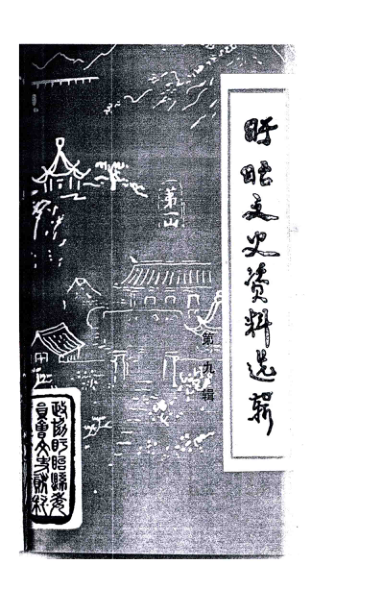 盱眙文史资料选辑
第九辑
第一山
政协盱眙县委
員會文史資料